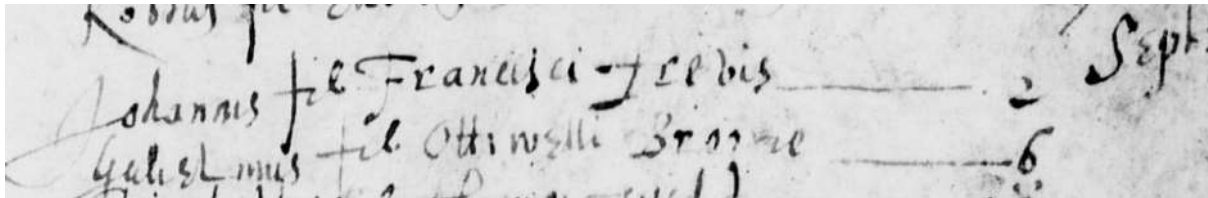 Robtus fil
Johannes fil Francisci Trebis 2 Sept:
Gulielmus fil Ottiwelli Broome 6